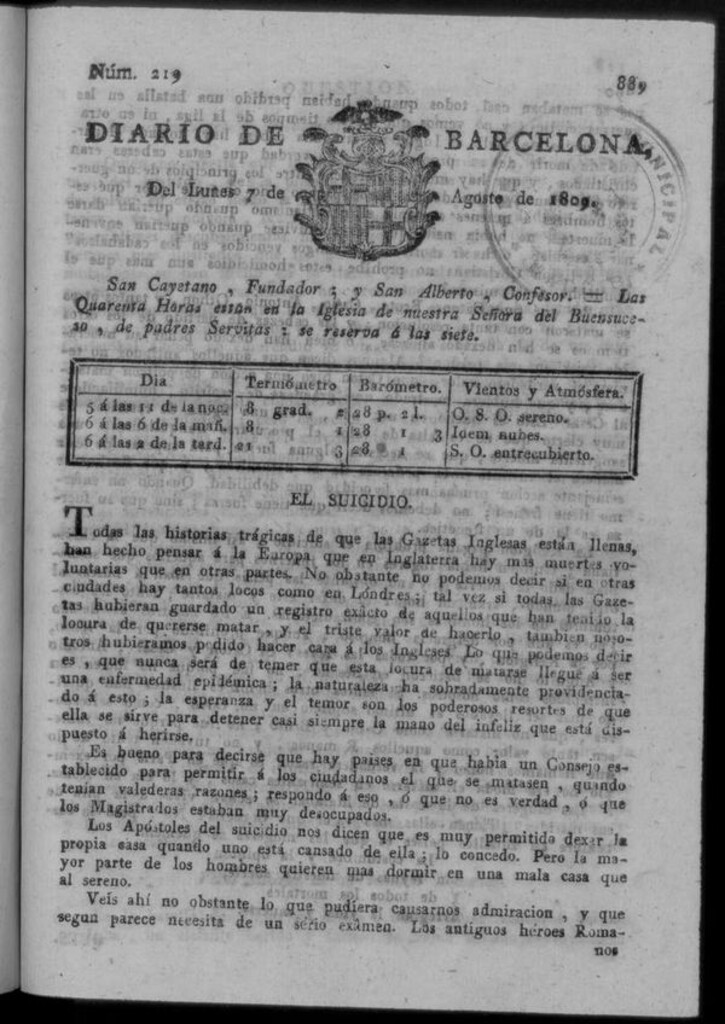 Núm. 219
889
DIARIO DE BARCELONA,
Del Lunes 7 de Agosto de 1809.
MUNICIPAL
San Cayetano, Fundador; y San Alberto, Confesor. = Las
Quarenta Horas están en la Iglesia de nuestra Señora del Buensuce-
so, de padres Servitas: se reserva á las siete.
Dia Termómetro Barómetro. Vientos y Atmósfera.
5 á las 11 de la noc. 8 grad. 2 28 p. 2 l. O. S. O. sereno.
6 á las 6 de la mañ. 8 1 28 1 3 Idem nubes.
6 á las 2 de la tard. 21 3 28 1 S. O. entrecubierto.
EL SUICIDIO.
Todas las historias trágicas de que las Gazetas Inglesas están llenas,
han hecho pensar á la Europa que en Inglaterra hay mas muertes vo-
luntarias que en otras partes. No obstante no podemos decir si en otras
ciudades hay tantos locos como en Lóndres; tal vez si todas las Gaze-
tas hubieran guardado un registro exácto de aquellos que han tenido la
locura de quererse matar, y el triste valor de hacerlo, tambien noso-
tros hubieramos podido hacer cara á los Ingleses. Lo que podemos decir
es, que nunca será de temer que esta locura de matarse llegue á ser
una enfermedad epidémica; la naturaleza ha sobradamente providencia-
do á esto; la esperanza y el temor son los poderosos resortes de que
ella se sirve para detener casi siempre la mano del infeliz que está dis-
puesto á herirse.
Es bueno para decirse que hay paises en que habia un Consejo es-
tablecido para permitir á los ciudadanos el que se matasen, quando
tenian valederas razones; respondo á eso, ó que no es verdad, ó que
los Magistrados estaban muy desocupados.
Los Apóstoles del suicidio nos dicen que es muy permitido dexar la
propia casa quando uno está cansado de ella; lo concedo. Pero la ma-
yor parte de los hombres quieren mas dormir en una mala casa que
al sereno.
Veis ahí no obstante lo que pudiera causarnos admiracion, y que
segun parece necesita de un sério exâmen. Los antiguos héroes Roma-
nos